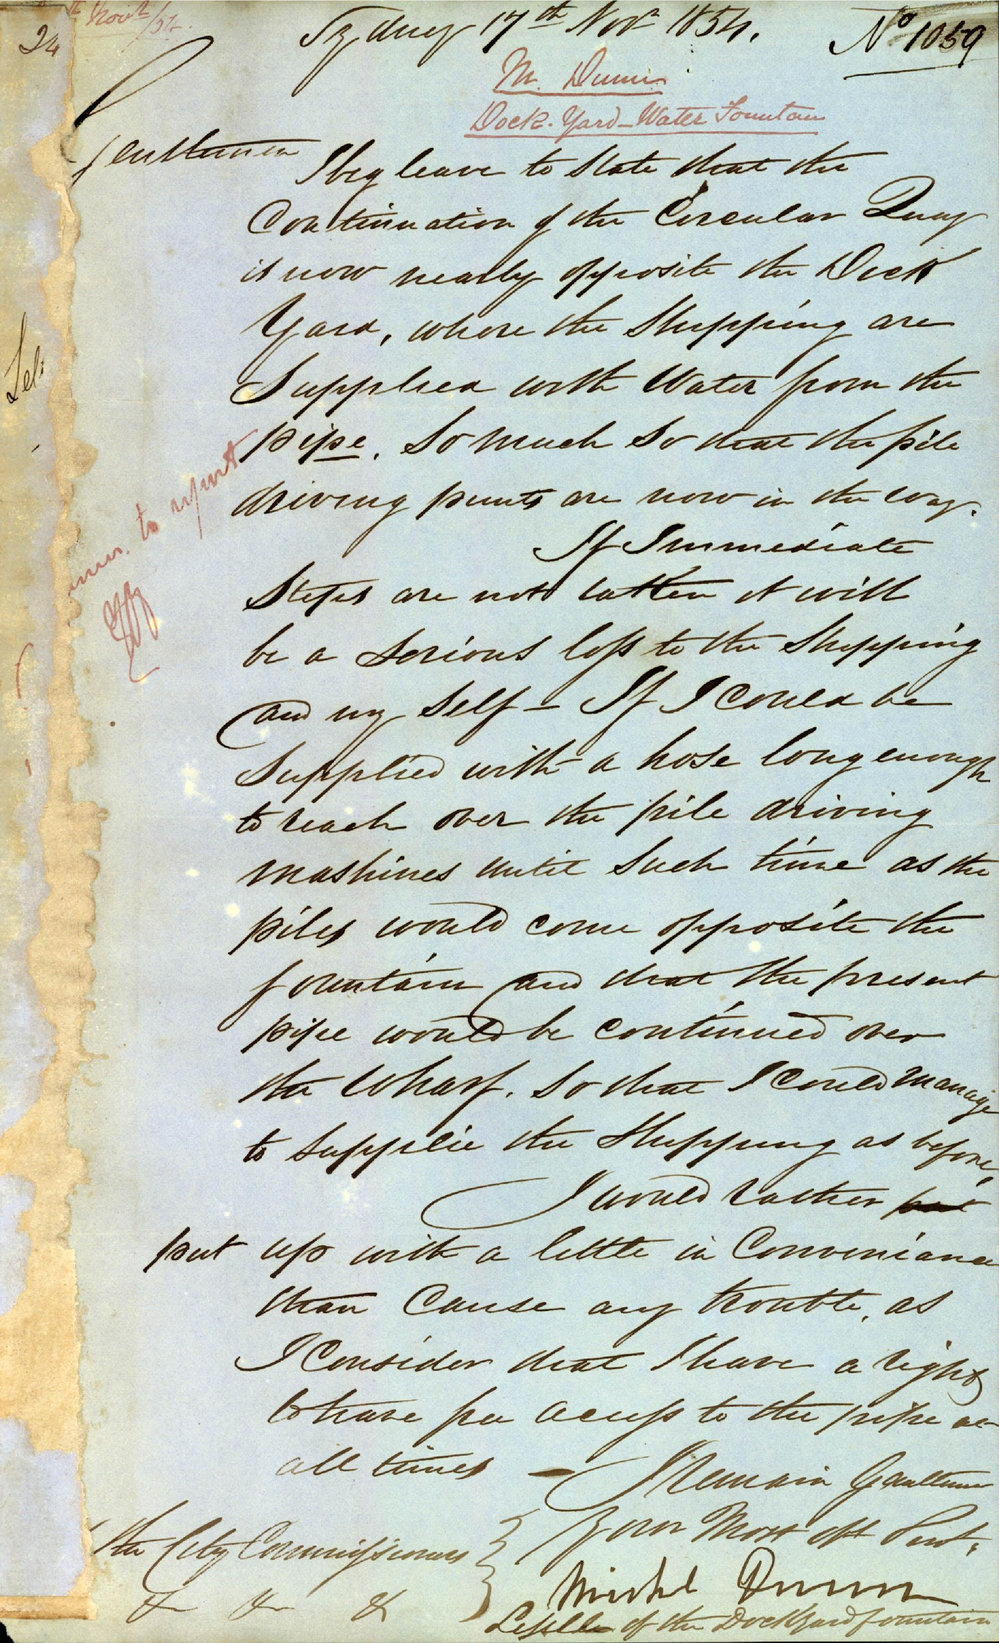 24
Novr /54
Sydney 17th Novr 1854. No 1059
Mr. Dunn
Dock-Yard-Water Fountain
Gentlemen
I beg leave to state that the
Continuation of the Circular Quay
is now nearly opposite the Dock
Yard, where the Shipping are
Supplied with Water from the
pipe, So much So that the pile
driving punts are now in the way.
If Immediate
Steps are not tatken it will
be a Serious loss to the Shipping
and my Self - If I could be
Supplied with a hose long enough
to reach over the pile driving
mashines until Such time as the
piles would come opposite the
fountain and that the present
pipe would be continued over
the Wharf. So that I could manage
to Supplie the Shipping as before,
I would rather put
put up with a little in Conveniance
than Cause any trouble, as
I Consider that I have a right
to have free access to the pipe at
all times - I Remain Gentlemen
Your Most obt Servt,
The City Commissioners
& & &
Michl Dunn
Lessee of the Dockyard fountain
Let:
to report